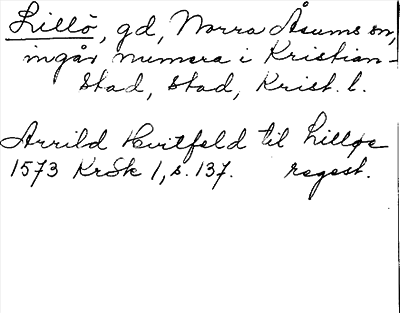 Lillö, gd, Norra Åsums sn,
ingår numera i Kristian-
stad, stad, Krist. l.
Arrild Hvitfeld til Lilløe
1573 KrSk 1, s. 137. regest.